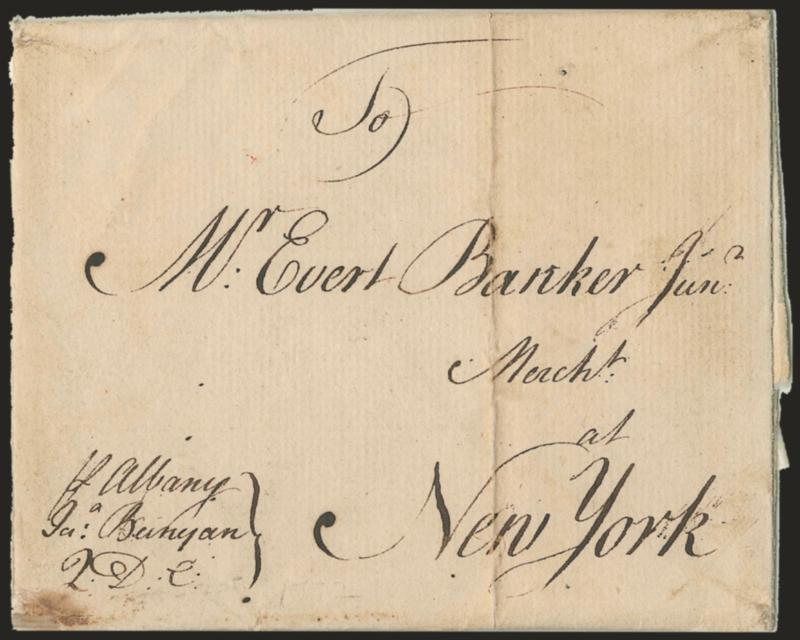 To
Mr. Evert Banker Junr.
Mercht.
at
New York
Albany
Bunyan
Q. D. C.